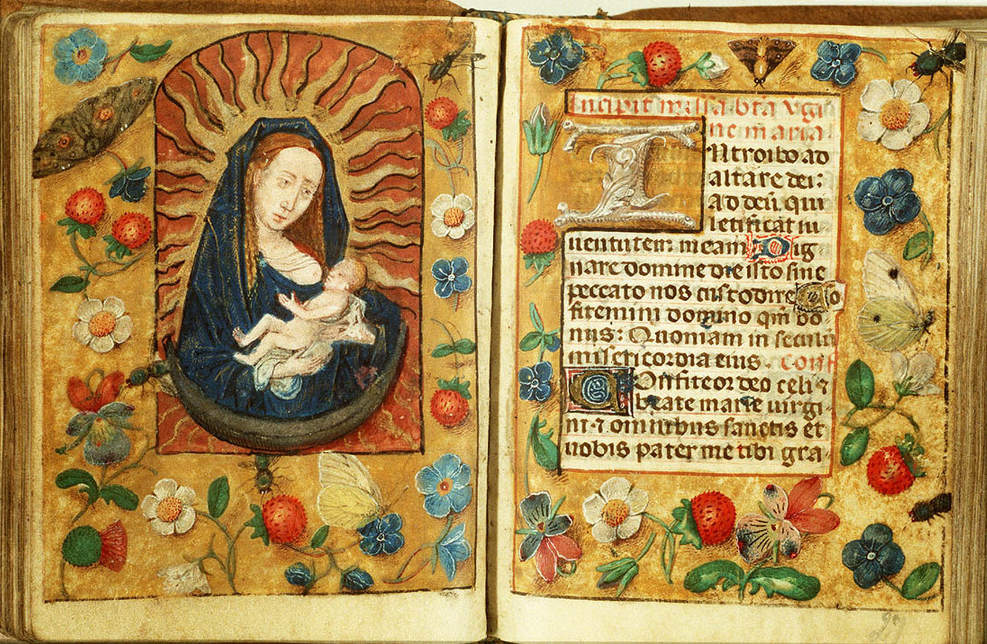 Incipit missa bta vgi
ne maria
INtroibo ad
altare dei:
Ad deū qui
letificat iu
uentutem meam Dig
nare domine die isto sine
peccato nos custodire Cō
fitemini domino qm̄ bo
nus: Quoniam in seculū
misericordia eius. Conf
COnfiteor deo celi ⁊
beate marie uirgi
ni ⁊ omnibus sanctis et
uobis pater me tibi gra